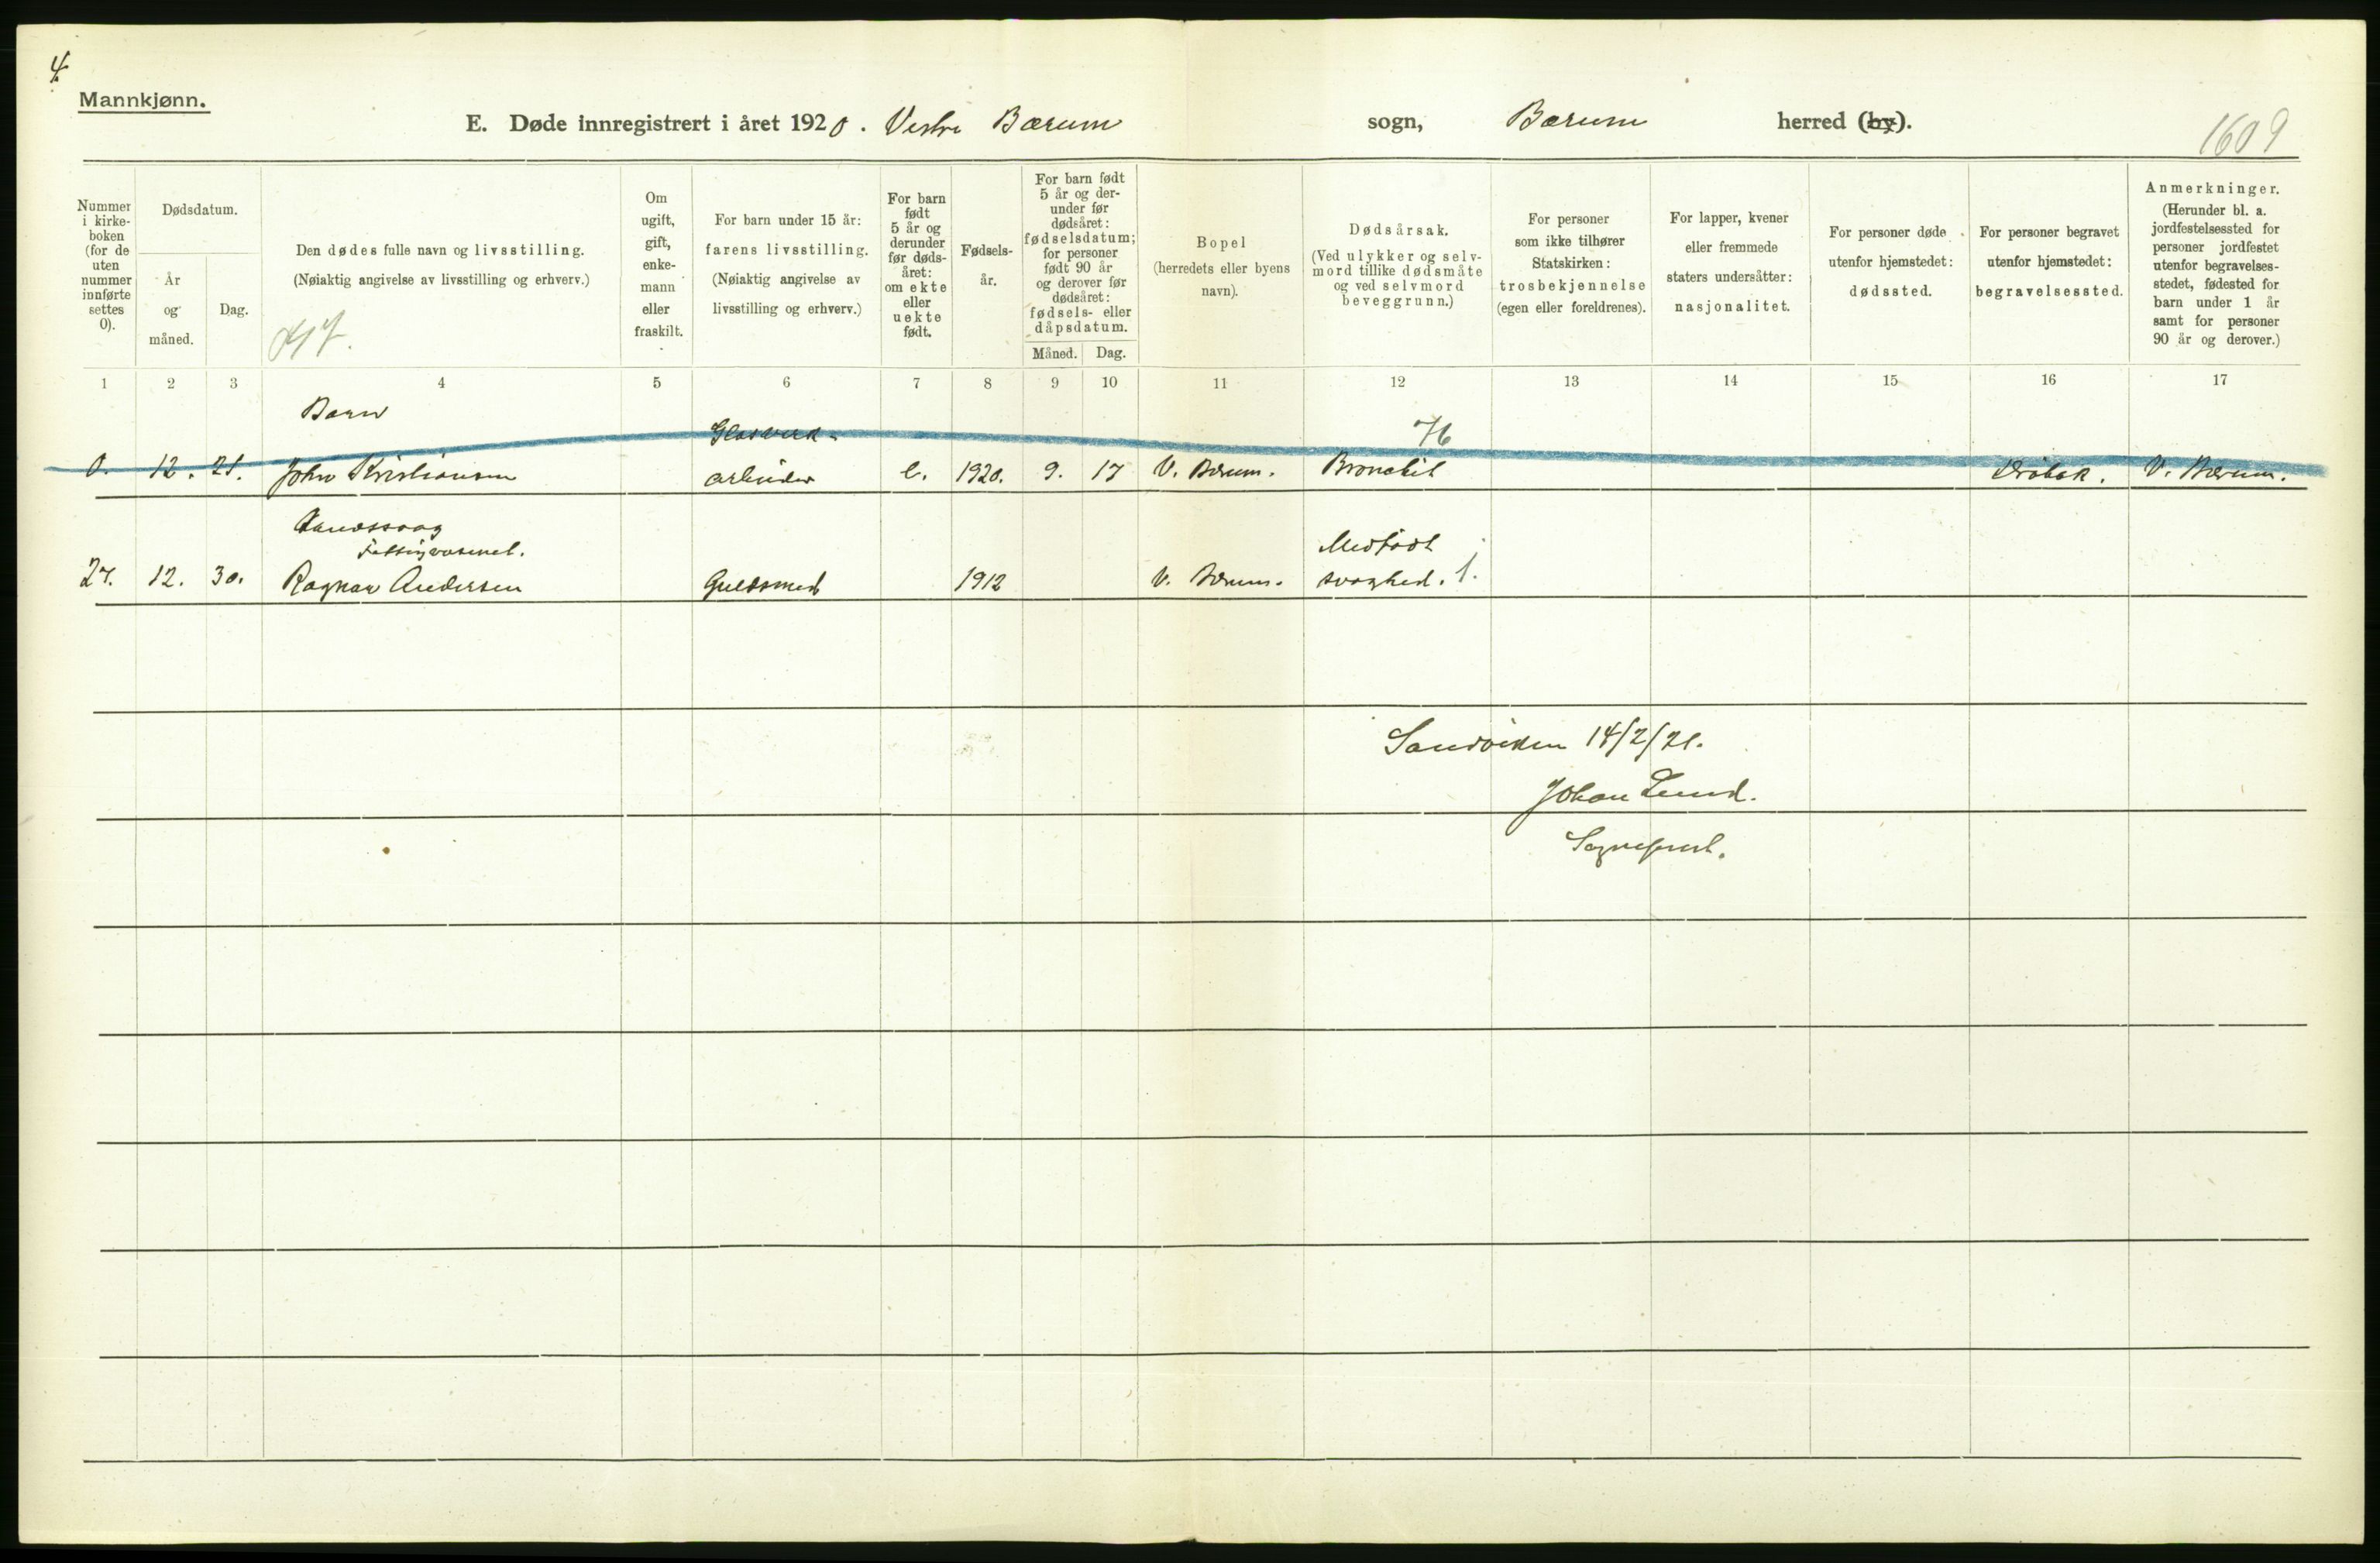 4
Mannkjønn.
E. Døde innregistrert i året 1920. Vestre Bærum sogn, Bærum herred (by).
1609
Nummer
i kirke-
boken
(for de
uten
nummer
innførte
settes
0).
Dødsdatum.
År
og
måned.
Dag.
Den dødes fulle navn og livsstilling.
(Nøiaktig angivelse av livsstilling og erhverv.)
Om
ugift,
gift,
enke-
mann
eller
fraskilt.
For barn under 15 år:
farens livsstilling.
(Nøiaktig angivelse av
livsstilling og erhverv.)
For barn
født
5 år og
derunder
før døds-
året:
om ekte
eller
uekte
født.
Fødsels-
år.
For barn født
5 år og der-
under før
dødsåret:
fødselsdatum;
for personer
født 90 år
og derover før
dødsåret:
fødsels- eller
dåpsdatum.
Måned. Dag.
Bopel
(herredets eller byens
navn).
Dødsårsak.
(Ved ulykker og selv-
mord tillike dødsmåte
og ved selvmord
beveggrunn.)
For personer
som ikke tilhører
Statskirken:
trosbekjennelse
(egen eller foreldrenes).
For lapper, kvener
eller fremmede
staters undersåtter:
nasjonalitet.
For personer døde
utenfor hjemstedet:
dødssted.
For personer begravet
utenfor hjemstedet:
begravelsessted.
Anmerkninger.
(Herunder bl. a.
jordfestelsessted for
personer jordfestet
utenfor begravelses-
stedet, fødested for
barn under 1 år
samt for personer
90 år og derover.)
1 2 3 4 5 6 7 8 9 10 11 12 13 14 15 16 17
Barn
Glasverk-
76
0. 12. 21. John Kristiansen arbeider e. 1920. 9. 17 V. Bærum. Bronchit Drøbak. V. Bærum.
Medfødt
27. 12. 30. Ragnar Andersen Guldsmed 1912 V. Bærum. svaghed. 1.
Sandviken 14/2/21.
Johan Lund.
Sogneprest.